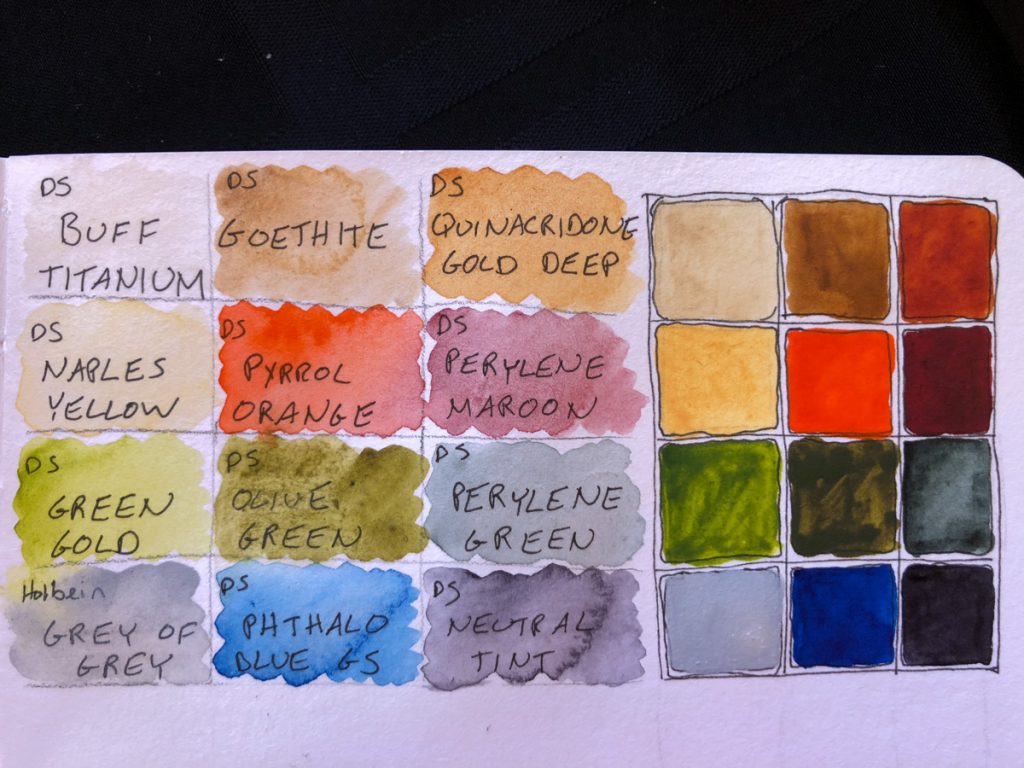 DS
BUFF
TITANIUM
DS
GOETHITE
DS
QUINACRIDONE
GOLD DEEP
DS
NAPLES
YELLOW
DS
PYRROL
ORANGE
DS
PERYLENE
MAROON
DS
GREEN
GOLD
DS
OLIVE
GREEN
DS
PERYLENE
GREEN
Holbein
GREY OF
GREY
DS
PHTHALO
BLUE GS
DS
NEUTRAL
TINT